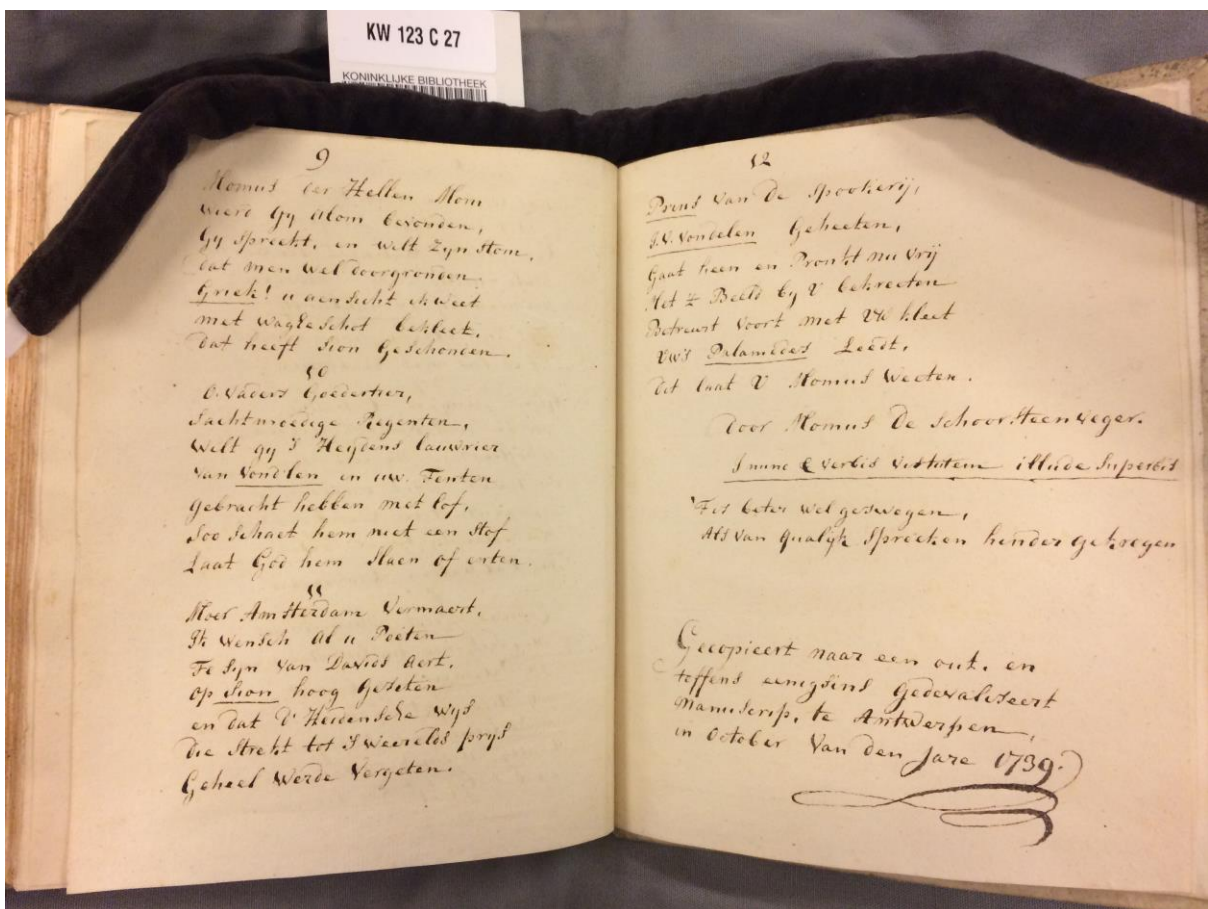 KW 123 C 27
KONINKLIJKE BIBLIOTHEEK
9
Momus der Hellen Mom
wierd Gy Alom bevonden,
Gy Spreekt, en welt Zyn Stom,
dat men wel doorgronden
Griek! u aensicht ik weet
met wagheschot bekleet.
Dat heeft Sion Geschonden.
10
O. Vaders Goedertier,
Sachtmoedige Regenten,
Welt gy S Heydens lauwrier
van Vondlen en uw. Fenten
Gebracht hebben met lof,
Soo Schaet hem niet een Stof
Laat God hem Slaen of enten.
11
Moer Amsterdam Vermaert,
Ik wensch Al u Poëten
Te Syn van Davids Aert.
op Sion hoog Geseten
en dat U Heidensche wijs
Die Strekt tot S Weerelds prys
Geheel Werde Vergeten.
12
Prins van De Spookerij,
J.V. Vondelen Geheeten,
Gaat heen en Pronkt nu Vrij
Met 't Beeld by U bekreeten
Betreurt Voort met UW kleet
UW's Palamedes Leedt,
Dit laat U Momus Weeten.
Door Momus De Schoorsteenveger.
I nunc & verbis virtutem illude Superbis
'Tis beter wel geswegen,
Als van qualijk Spreeken hinder gekregen
Gecopieert naar een out, en
toffens eenigsins Gedevaliseert
Manuscrip, te Antwerpen,
in October Van den Jare 1739.